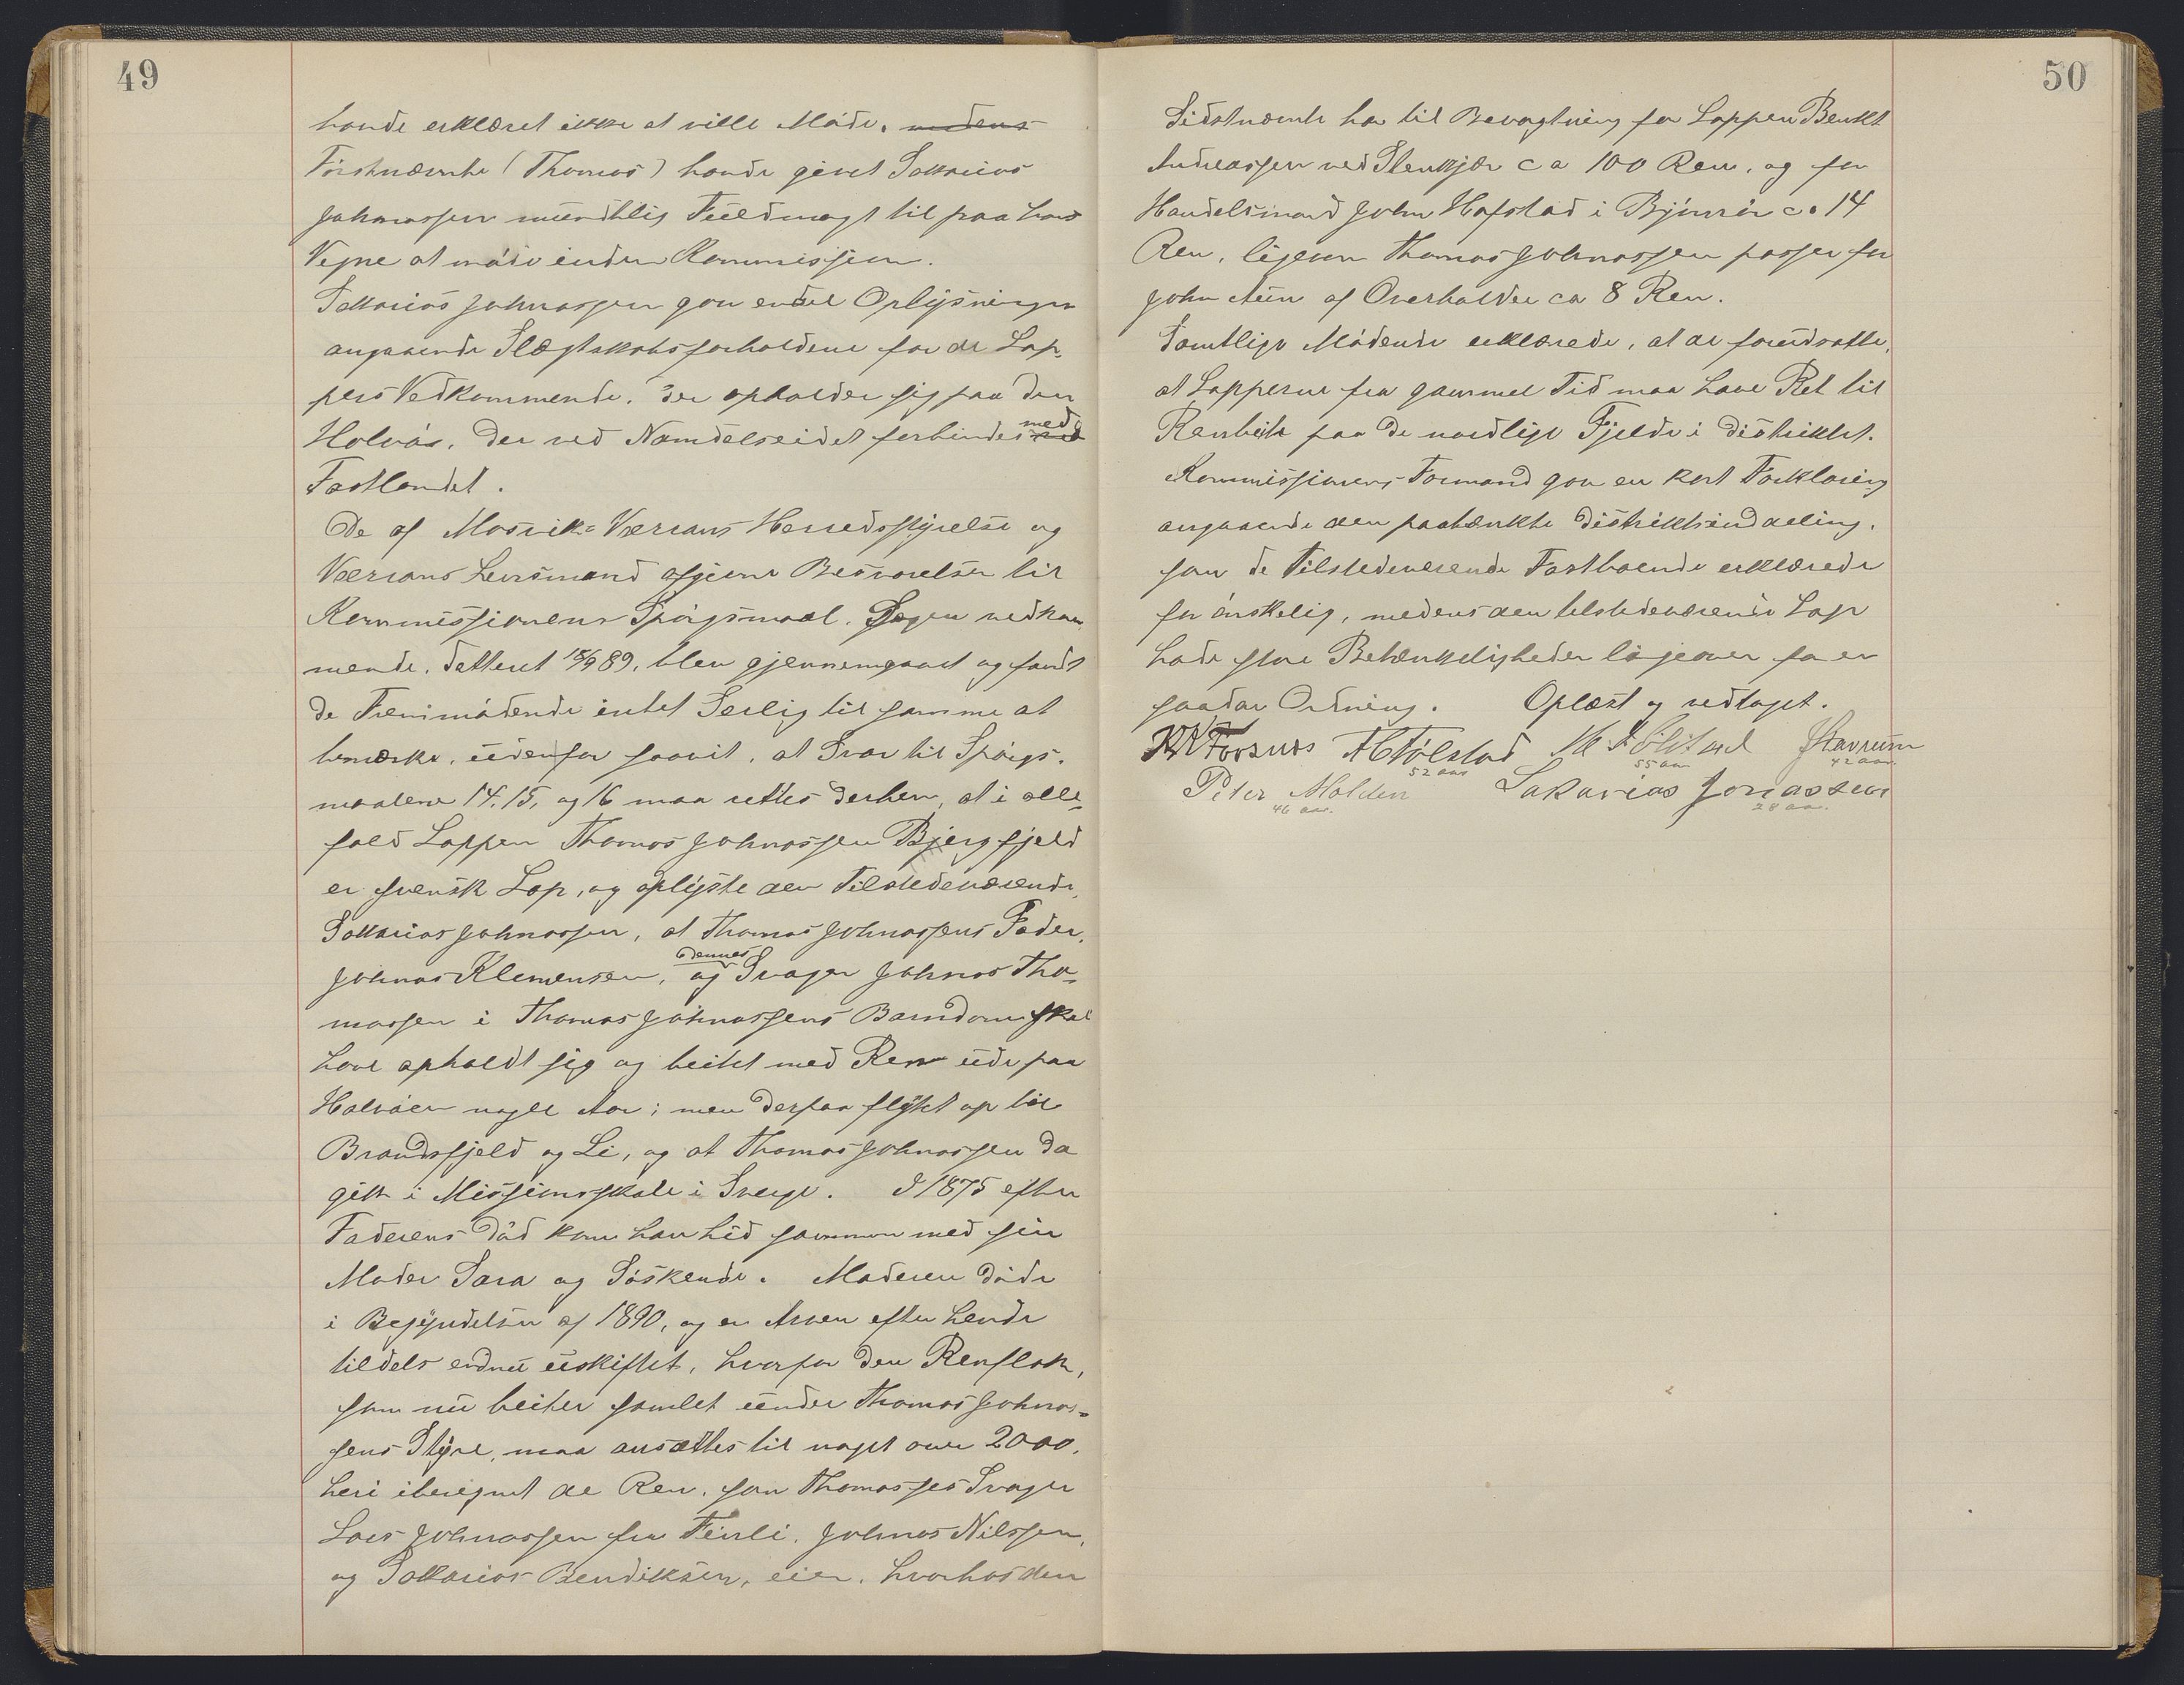 49
havde erklæret ikke at ville Møde. medens
Førstnævnte (Thomas) havde givet Sakarias
Johnassen mundtlig Fuldmagt til paa hans
Vegne at møde inden Kommissjonen.
Sakarias Johnassen gav endel Oplysninger
angaaende Slægtskabsforholdene for de Lap-
pers Vedkommende, der opholder sig paa den
Halvø, der ved Namdalseidet forbindes med
Fastlandet.
De af Mosvik-Værrans Herredsstyrelse og
Værrans Lensmand afgivne Besvarelser til
Kommissionens Spørgsmaal. Sagen vedkom-
mende, datteret 18/9 89, blev gjennemgaaet og fandt
de Fremmødende intet Særlig til samme at
bemærke, udenfor saavit, at Svar til Spørgs-
maalene 14, 15, og 16 maa rettes derhen, at i alle-
fald Lappen Thomas Johnassen Bjergfjeld
er svensk Lap, og oplyste den Tilstedeværende,
Sakarias Johnassen, at Thomas Johnassens Fader,
Johnas Klemensen, og dennes Svager Johnas Tho-
massen i Thomas Johnassens Barndom skal
have opholdt sig og beitet med Ren ude paa
Halvøen nogle Aar; men derpaa flyttet op til
Brandsfjeld og Li, og at Thomas Johnassen da
gikk i Missionsskole i Sverge. I 1875 efter
Faderens Død kom han hid sammen med sin
Moder Sara og Søskende. Moderen døde
i Begyndelsen af 1890, og er Arven efter hende
tildels endnu uskiftet, hvorfor den Renflok,
som nu beiter samlet under Thomas Johnas-
sens Styre, maa ansættes til noget over 2000,
heri iberegnet de Ren, som Thomasses Svager
Lars Johnassen fra Finli, Johnas Nilssen,
og Sakarias Bendiksen, eier, hvorhos den
50
Sidstnævnte har til Bevogtning for Lappen Benkt
Andreassen ved Stenkjær ca 100 Ren, og for
Handelsmand John Hafstad i Bjørnør ca 14
Ren, ligesom Thomas Johnassen passer for
John Aun af Overhalden ca 8 Ren.
Samtlige Mødende erklærede, at de forudsatte,
at Lapperne fra gammel Tid maa have Ret til
Renbeite paa de nordlige Fjelde i Distriktet.
Kommissionens Formand gav en kort Forklaring
angaaende den paatænkte Distriktsinddeling,
som de Tilstedeværende Fastboende erklærede
for ønskelig, medens den tilstedeværende Lap
havde store Betænkeligheder ligeover for en
saadan Ordning. Oplæst og vedtaget.
Følstad
52 aar 55 aar 42 aar.
Peter Molden Sakarias Jonassen
46 aar. 28 aar.